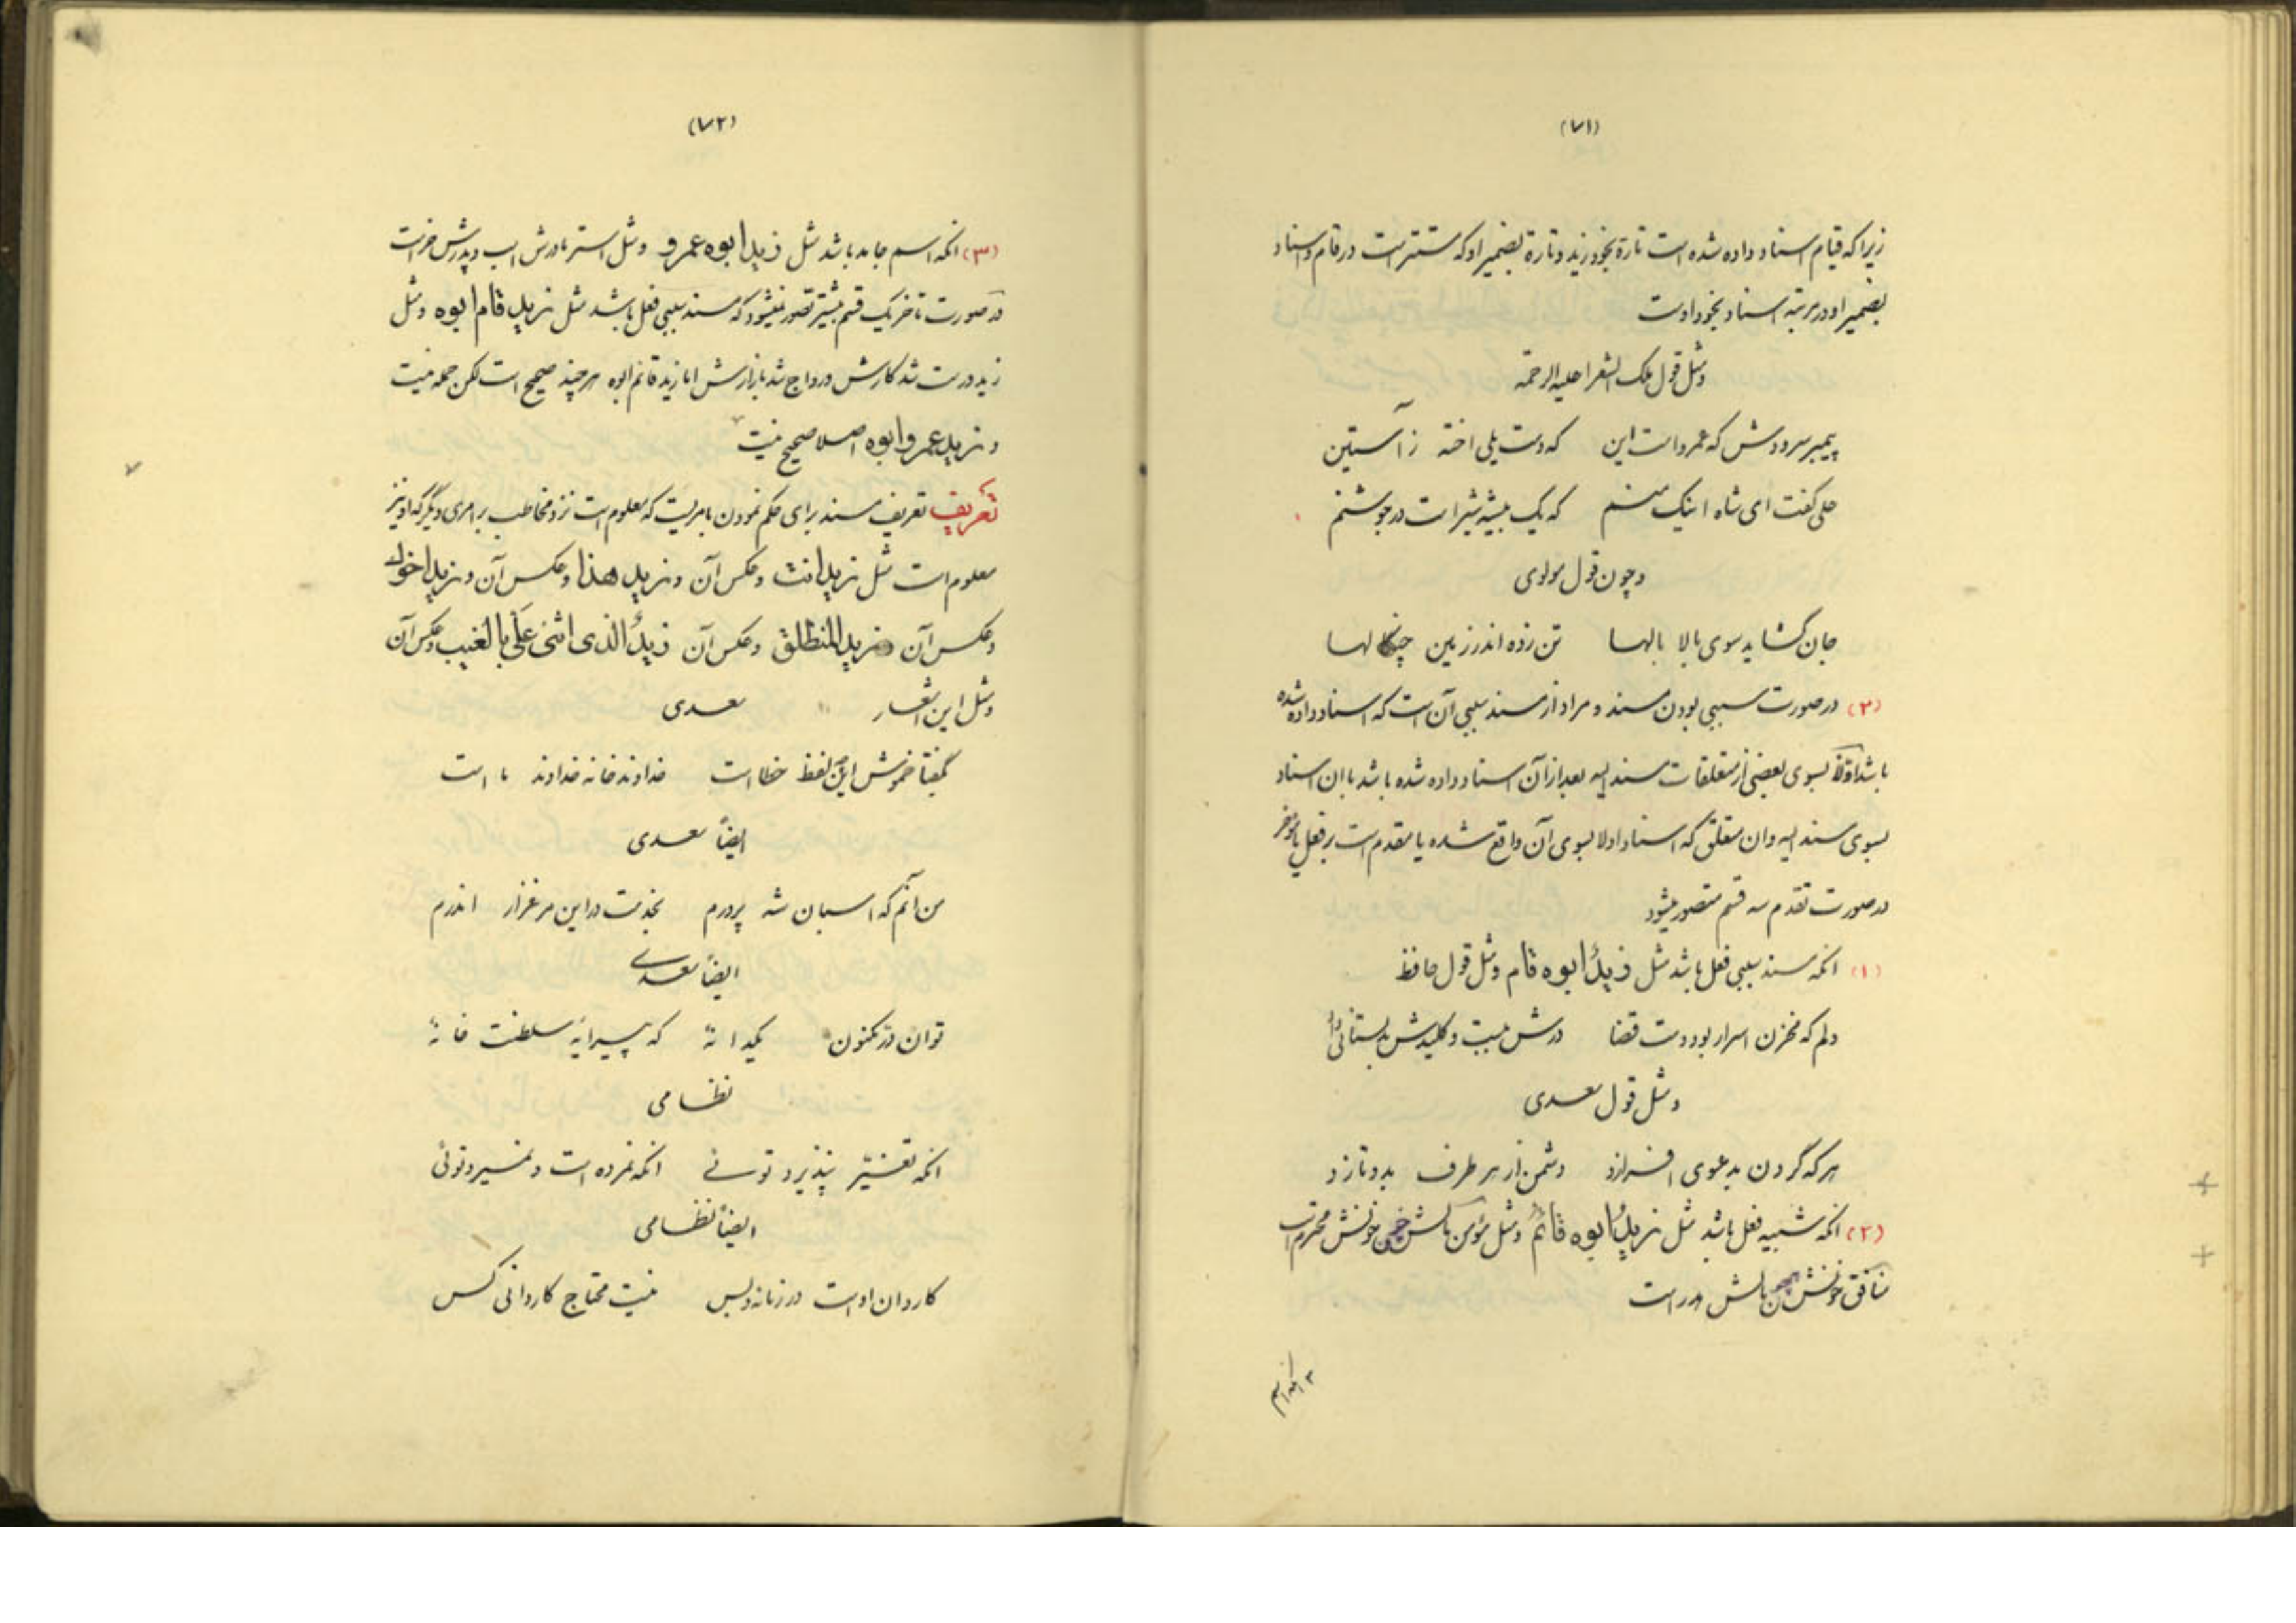 (۷۱)
زیرا که قیام اسناد داده شده است تارة بخود زید و تارة بضمیر او که مستتر است در قام و اسناد
بضمیر او در مرتبه اسناد بخود اوست
و مثل قول ملک الشعرا علیه الرحمة
پیمبر سرودش که عمرو است این که دست یلی اخته ز آستین
علی گفت ای شاه اینک منم که یک بیشه شیر است در جوشنم
و چون قول مولوی
جان گشاید سوی بالا بالها تن زده اندر زمین چنگالها
(۳) در صورت سببی بودن مسند و مراد از مسند سببی آن است که اسناد داده شده
باشد اولاً بسوی بعضی از متعلقات مسند الیه بعد از آن اسناد داده شده باشد با ان اسناد
بسوی مسند الیه و ان متعلق که اسناد اولا بسوی آن واقع شده یا مقدم است بر فعل یا مؤخر
در صورت تقدم سه قسم متصور میشود
(۱) انکه مسند سببی فعل باشد مثل زیدٌ ابوه قام و مثل قول حافظ
دلم که مخزن اسرار بود دست قضا درش ببست و کلیدش بدلستانی داد
و مثل قول سعدی
هر که گردن بدعوی افرازد دشمن از هر طرف بدو تازد
(۲) انکه شبیه فعل باشد مثل زیدٌ ابوه قائمٌ و مثل مؤمن مالش خونش محترم است
منافق خونش مالش هدر است
(۷۲)
(۳) انکه اسم جامد باشد مثل زید ابوه عمرو و مثل استر مادرش اسب و پدرش خر است
در صورت تاخر یک قسم بیشتر تصور نمیشود که مسند سببی فعل باشد مثل زید قام ابوه و مثل
زید درست شد کارش و رواج شد بازارش اما زید قائم ابوه هر چند صحیح است لکن جمله نیست
و زید عمرو ابوه اصلا صحیح نیست
تعریف تعریف مسند برای حکم نمودن بامریست که معلوم است نزد مخاطب بر امری دیگر که او نیز
معلوم است مثل زید انت و عکس آن و زید هذا و عکس آن و زید اخوک
و عکس آن و زید المنطلق و عکس آن زیدٌ الذی اثنی عَلَیَّ بالغیب و عکس آن
و مثل این اشعار سعدی
بگفتا خموش این لفظ خطا است خداوند خانه خداوند ما است
ایضاً سعدی
من آنم که اسبان شه پرورم بخدمت در این مرغزار اندرم
ایضاً سعدی
تو ان در مکنون یکدانهٔ که پیرایه سلطنت خانهٔ
نظامی
انکه تغیّر نپذیرد توئی انکه نمرده است و نمیرد توئی
ایضاً نظامی
کاردان اوست در زمانه و بس نیست محتاج کاردانی کس